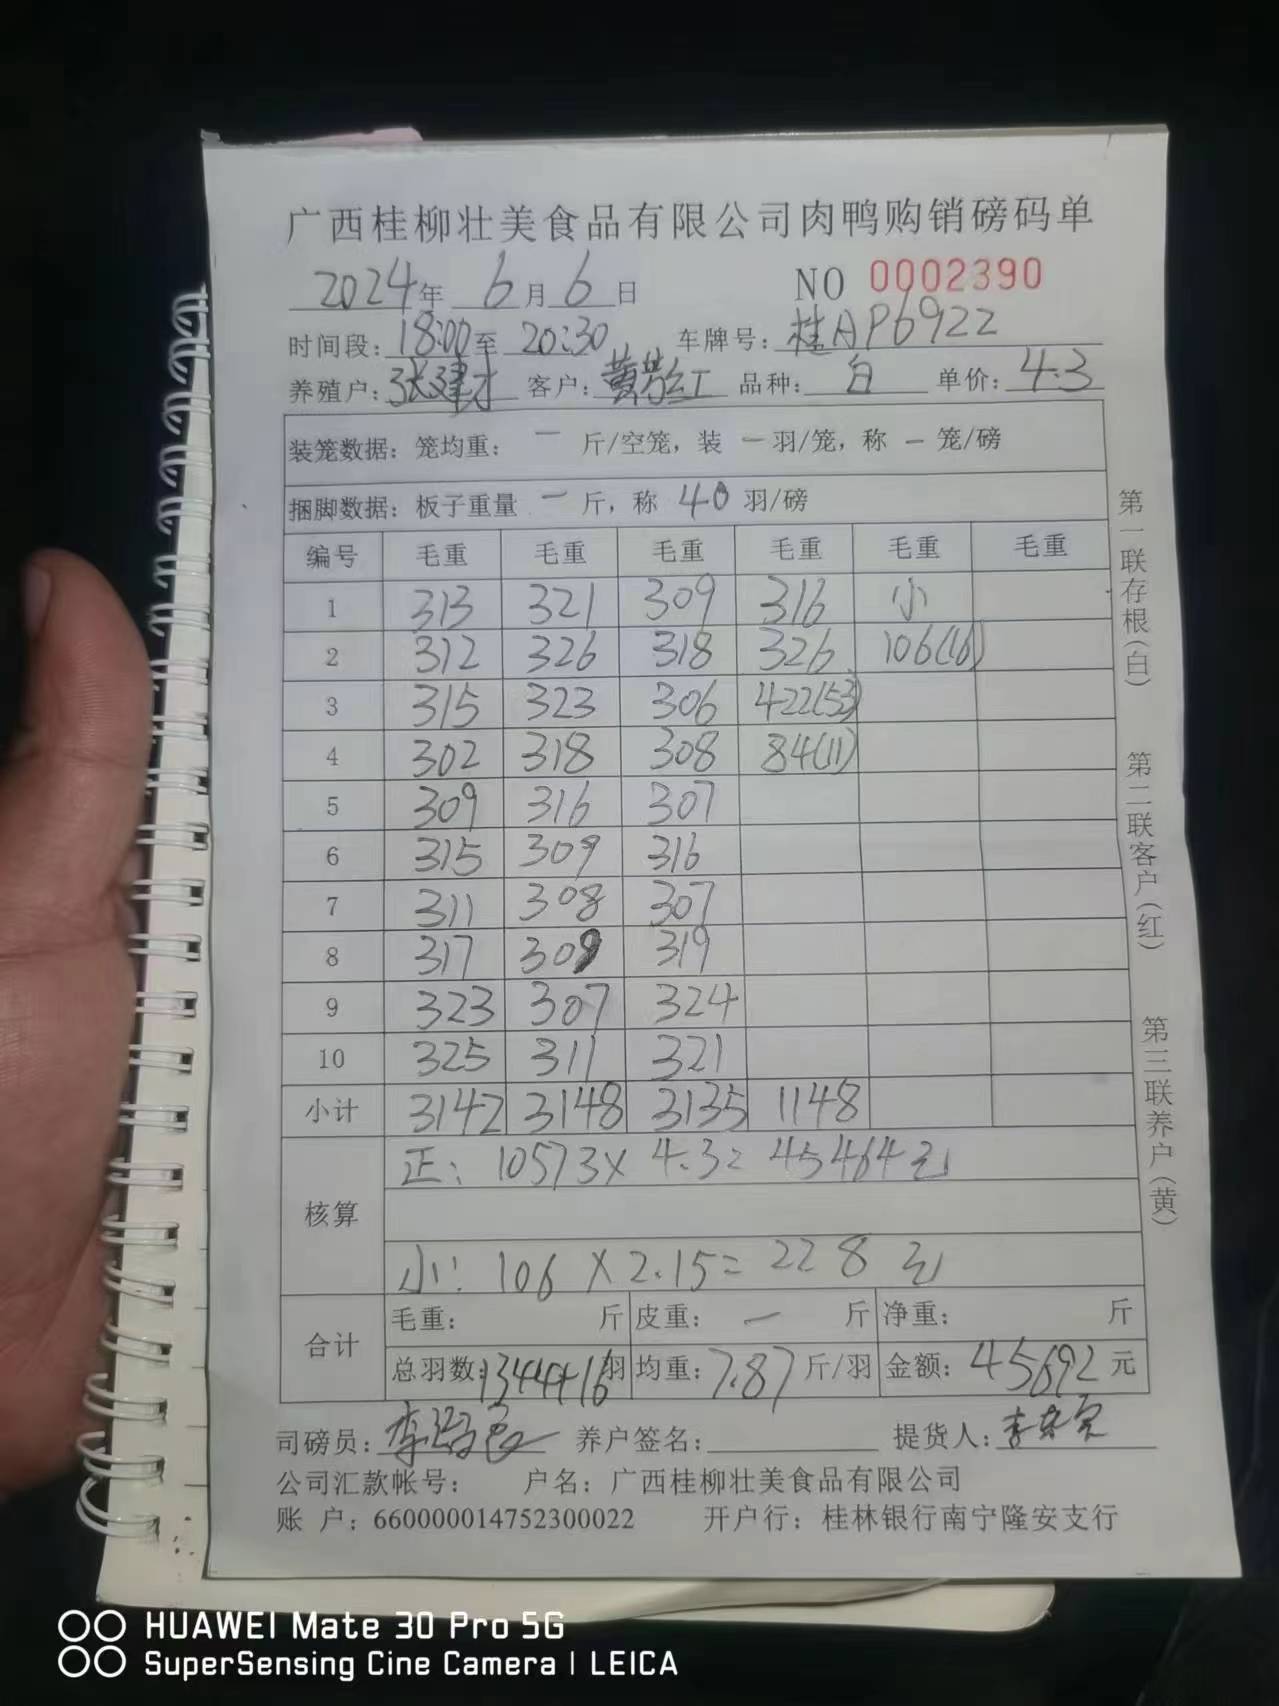 广西桂柳壮美食品有限公司肉鸭购销磅码单
2024年 6月6日 NO 0002390
时间段：18:00至 20:30 车牌号：桂AP6922
养殖户：张建才 客户： 品种：白 单价：4.3
装笼数据：笼均重： 一 斤/空笼，装 一 羽/笼，称 一 笼/磅
捆脚数据：板子重量 一 斤，称 40 羽/磅
编号 毛重 毛重 毛重 毛重 毛重 毛重
1 313 321 309 316 小
2 312 326 318 326 106(16)
3 315 323 306 422(53)
4 302 318 308 84(11)
5 309 316 307
6 315 309 316
7 311 308 307
8 317 309 319
9 323 307 324
10 325 311 321
小计 3142 3148 3135 1148
核算 正：10573×4.3=45464元
小：106×2.15=228元
合计 毛重： 斤 皮重：一 斤 净重： 斤
总羽数：1344+16羽 均重：7.87斤/羽 金额：45692元
司磅员： 养户签名： 提货人：
公司汇款帐号： 户名：广西桂柳壮美食品有限公司
账 户：660000014752300022 开户行：桂林银行南宁隆安支行
第一联存根（白）
第二联客户（红）
第三联养户（黄）
HUAWEI Mate 30 Pro 5G
SuperSensing Cine Camera | LEICA